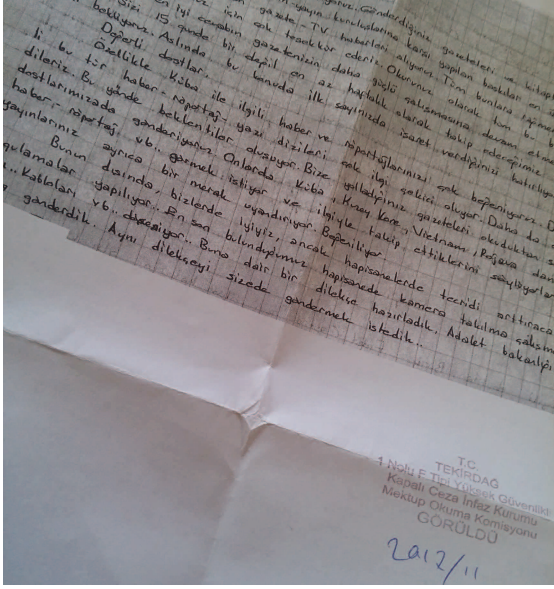 yoruz. Gönderdiğiniz gazeteleri ve kitap
gazete - TV yayın kuruluşlarına karşı yapılan baskıları en
için çok teşekkür ederiz. Okurunuz olarak tüm bu b
en iyi cevabın gazetenizin daha güçlü çıkmasına devam etme
Sizi 15 günde bir değil en az haftalık olarak takip edeceğimiz
bekliyoruz. Aslında bu konuda ilk sayınızda işaret verdiğinizi hatırlıyo
Değerli dostlar.
Özellikle Küba ile ilgili haber ve röportajlarınızı çok beğeniyoruz. D
li bu tür haber - röportaj - yazı dizileri çok ilgi çekici oluyor. Daha da
dileriz. Bu yönde beklentiler oluşuyor. Bize yolladığınız gazeteleri okuduktan s
dostlarımızada gönderiyoruz. Onlarda Küba, Kuzey Kore, Vietnam, Rojava dan
haber - röportaj vb.. görmek istiyor ve ilgiyle takip ettiklerini söylüyorlar
yayınlarınız ayrıca bir merak uyandırıyor. Beğeniliyor
Bunun dışında, bizlerde iyiyiz, ancak hapisanelerde tecridi arttıraca
gulamalar yapılıyor.. En son bulunduğumuz hapisanede kamera takılma çalışm
.. Kabloları vb.. döşeniyor.. Buna dair bir dilekçe hazırladık. Adalet bakanlığı
gönderdik. Aynı dilekçeyi sizede göndermek istedik..
T.C.
TEKİRDAĞ
1 Nolu F Tipi Yüksek Güvenlikli
Kapalı Ceza İnfaz Kurumu
Mektup Okuma Komisyonu
GÖRÜLDÜ
2012/11